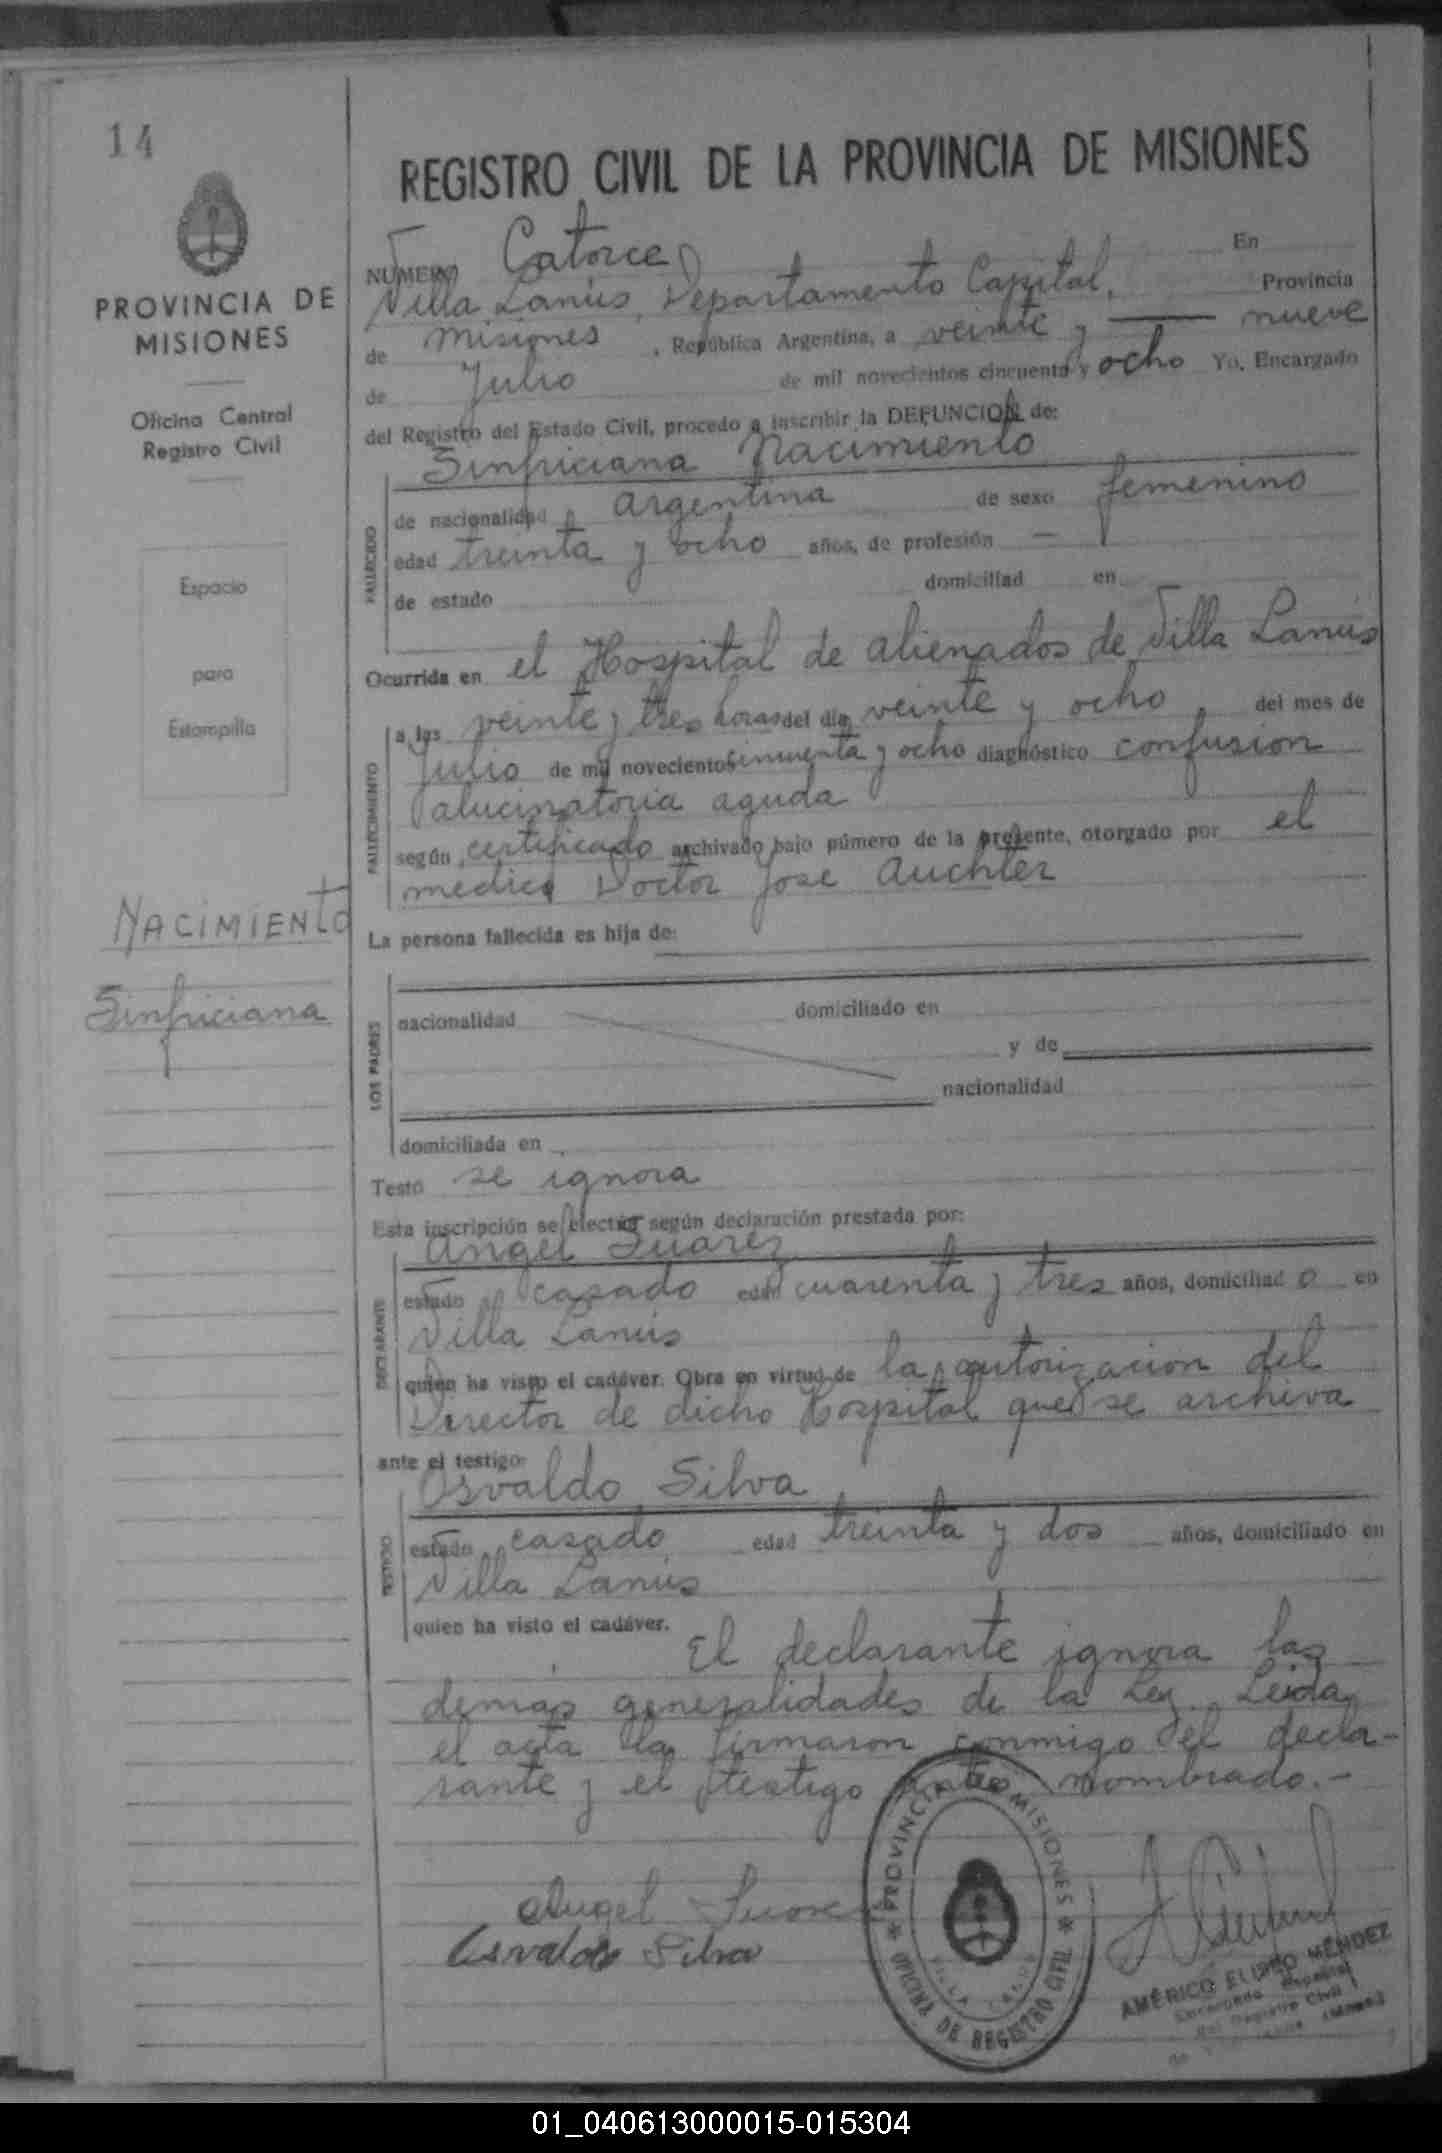 14
PROVINCIA DE
MISIONES
Oficina Central
Registro Civil
Espacio
para
Estampilla
NACIMIENTO
Sinfriciana
REGISTRO CIVIL DE LA PROVINCIA DE MISIONES
NUMERO Catorce En
Villa Lanús, Departamento Capital, Provincia
de Misiones, República Argentina, a veinte y nueve
de Julio de mil novecientos cincuenta y ocho Yo, Encargado
del Registro del Estado Civil, procedo a inscribir la DEFUNCION de:
Sinfriciana Nacimiento
FALLECIDO
de nacionalidad argentina de sexo femenino
edad treinta y ocho años, de profesión —
de estado domiciliad en
Ocurrida en el Hospital de alienados de Villa Lanús
FALLECIMIENTO
a las veinte y tres horas del día veinte y ocho, del mes de
Julio de mil novecientos cincuenta y ocho diagnóstico confusion
alucinatoria aguda
según certificado archivado bajo número de la presente, otorgado por el
medico Doctor Jose Auchter
La persona fallecida es hija de:
LOS PADRES
nacionalidad domiciliado en
y de
nacionalidad
domiciliada en
Testó se ignora
Esta inscripción se efectúa según declaración prestada por:
Angel Suarez
DECLARANTE
estado casado edad cuarenta y tres años, domiciliad o en
Villa Lanús
quien ha visto el cadáver. Obra en virtud de la autorizacion del
Director de dicho Hospital que se archiva
ante el testigo:
Osvaldo Silva
TESTIGO
estado casado edad treinta y dos años, domiciliado en
Villa Lanús
quien ha visto el cadáver.
El declarante ignora las
demas generalidades de la Ley. Leida
el acta la firmaron conmigo el decla-
rante y el testigo antes nombrado.-
Angel Suarez
Osvaldo Silva
PROVINCIA DE MISIONES
VILLA LANUS
OFICINA DE REGISTRO CIVIL
AMÉRICO ELISEO MÉNDEZ
Encargado
del Registro Civil
de Villa Lanus (Mnes.)
01_040613000015-015304